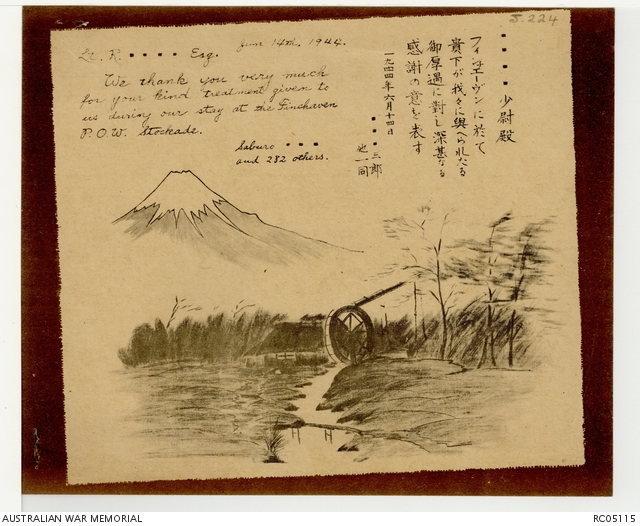 J.224
Lt. R. •••• Esq. June 14th, 1944.
We thank you very much
for your kind treatment given to
us during our stay at the Finchaven
P.O.W. Stockade.
Saburo •••
and 282 others.
••••少尉殿
フィンシエーヴンに於て
貴下が我々に與へられたる
御厚遇に對し深甚なる
感謝の意を表す
一九四四年六月十四日
•••三郎
他一同
AUSTRALIAN WAR MEMORIAL
RC05115